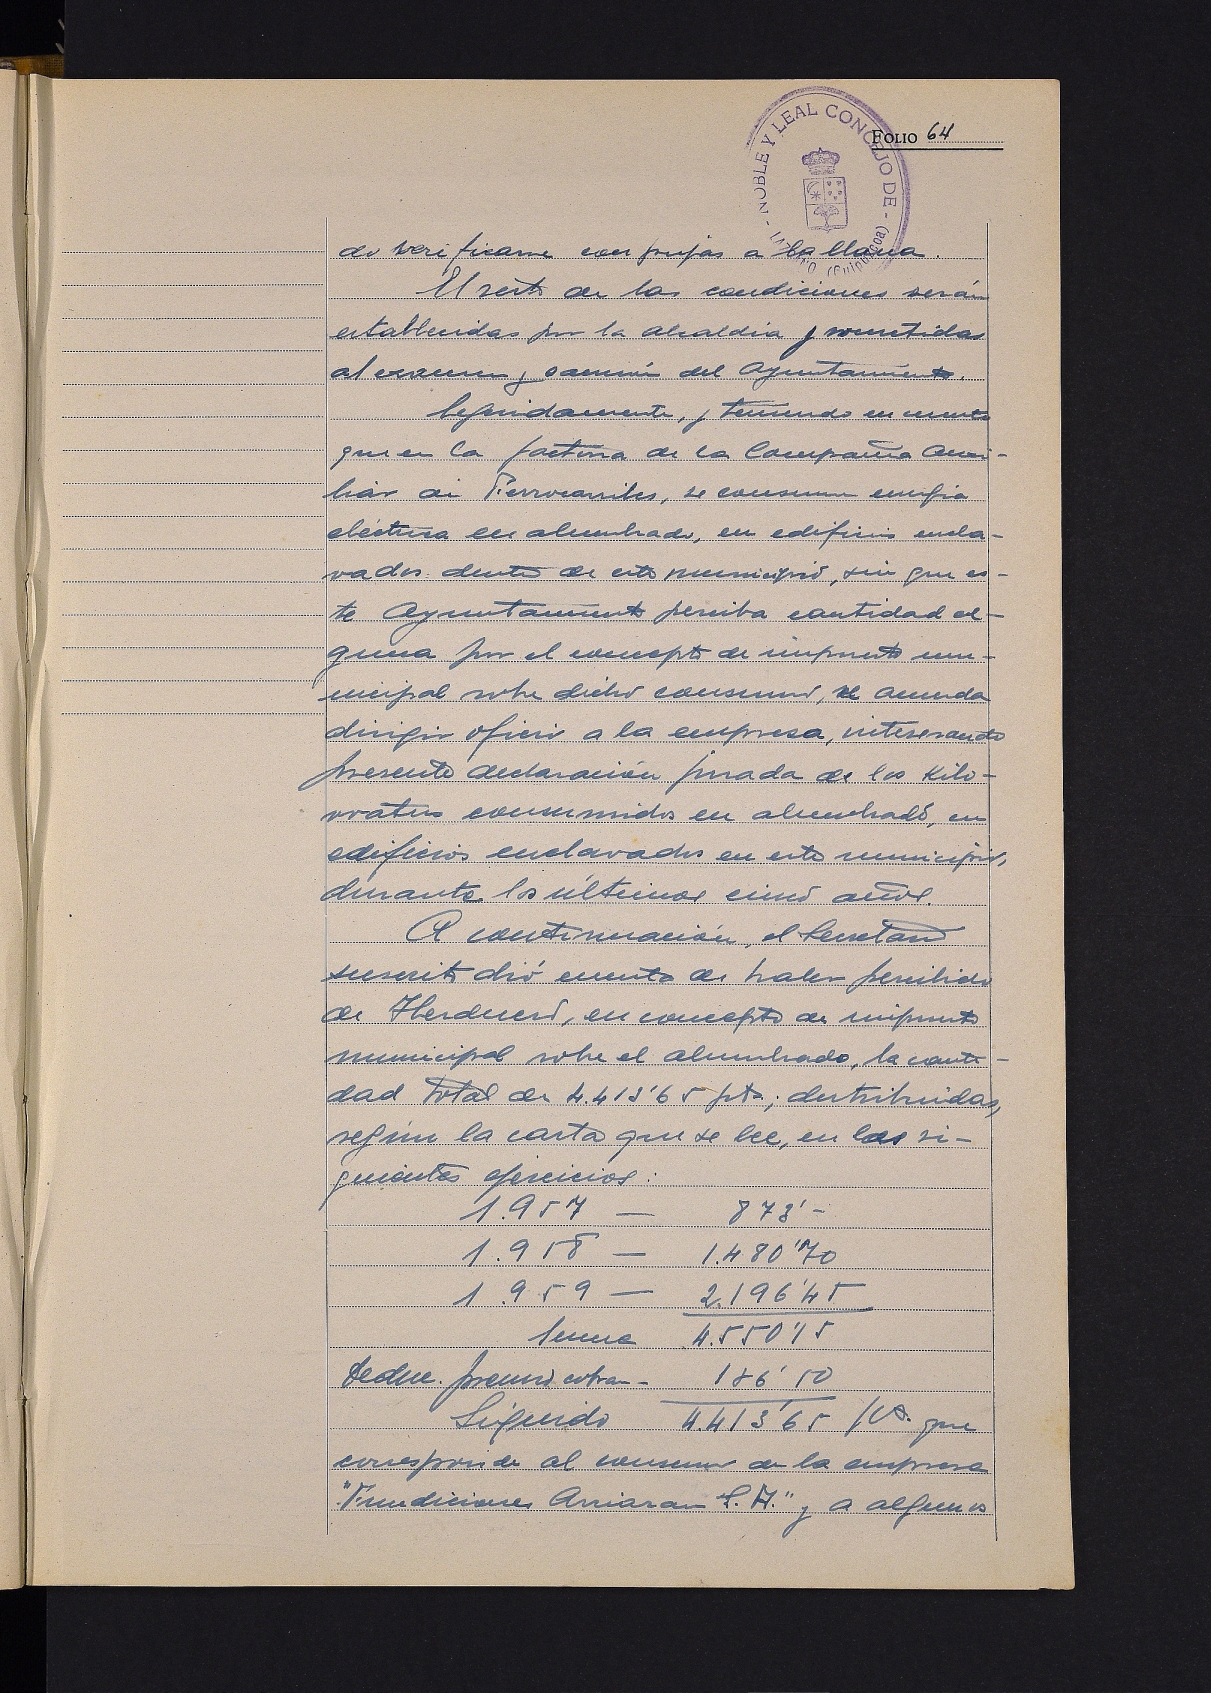 NOBLE Y LEAL CONCEJO DE - (Guipúzcoa) -
FOLIO 64
do verificarse con pujas a la llana.
El resto de las condiciones serán
establecidas por la alcaldía y sometidas
al examen y sanción del Ayuntamiento.
Seguidamente, y teniendo en cuenta
que en la factoria de la Compañia Auxi-
liar de Ferrocarriles, se consume energia
eléctrica en alumbrado, en edificios encla-
vados dentro de este municipio, sin que es-
te Ayuntamiento perciba cantidad al-
guna por el concepto de impuesto mu-
nicipal sobre dicho consumo, se acuerda
dirigir oficio a la empresa, interesando
presente declaración jurada de los Kilo-
vatios consumidos en alumbrado, en
edificios enclavados en este municipio,
durante los últimos cinco años.
A continuación, el Secretario
suscrito dió cuenta de haber percibido
de Iberduero, en concepto de impuesto
municipal sobre el alumbrado, la canti-
dad total de 4.413'65 pts.; distribuidas,
según la carta que se lee, en los si-
guientes ejercicios:
1.957 — 873'-
1.958 — 1.480'70
1.959 — 2.196'45
Suma 4.550'15
Deduc. premio cobran-
Líquido 4.413'65 pts. que
corresponde al consumo de la empresa
"Fundiciones Arriaran S.A." y a algunos